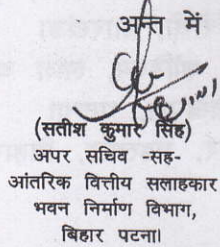 अन्त में
(सतीश कुमार सिंह)
अपर सचिव -सह-
आंतरिक वित्तीय सलाहकार
भवन निर्माण विभाग,
बिहार पटना।